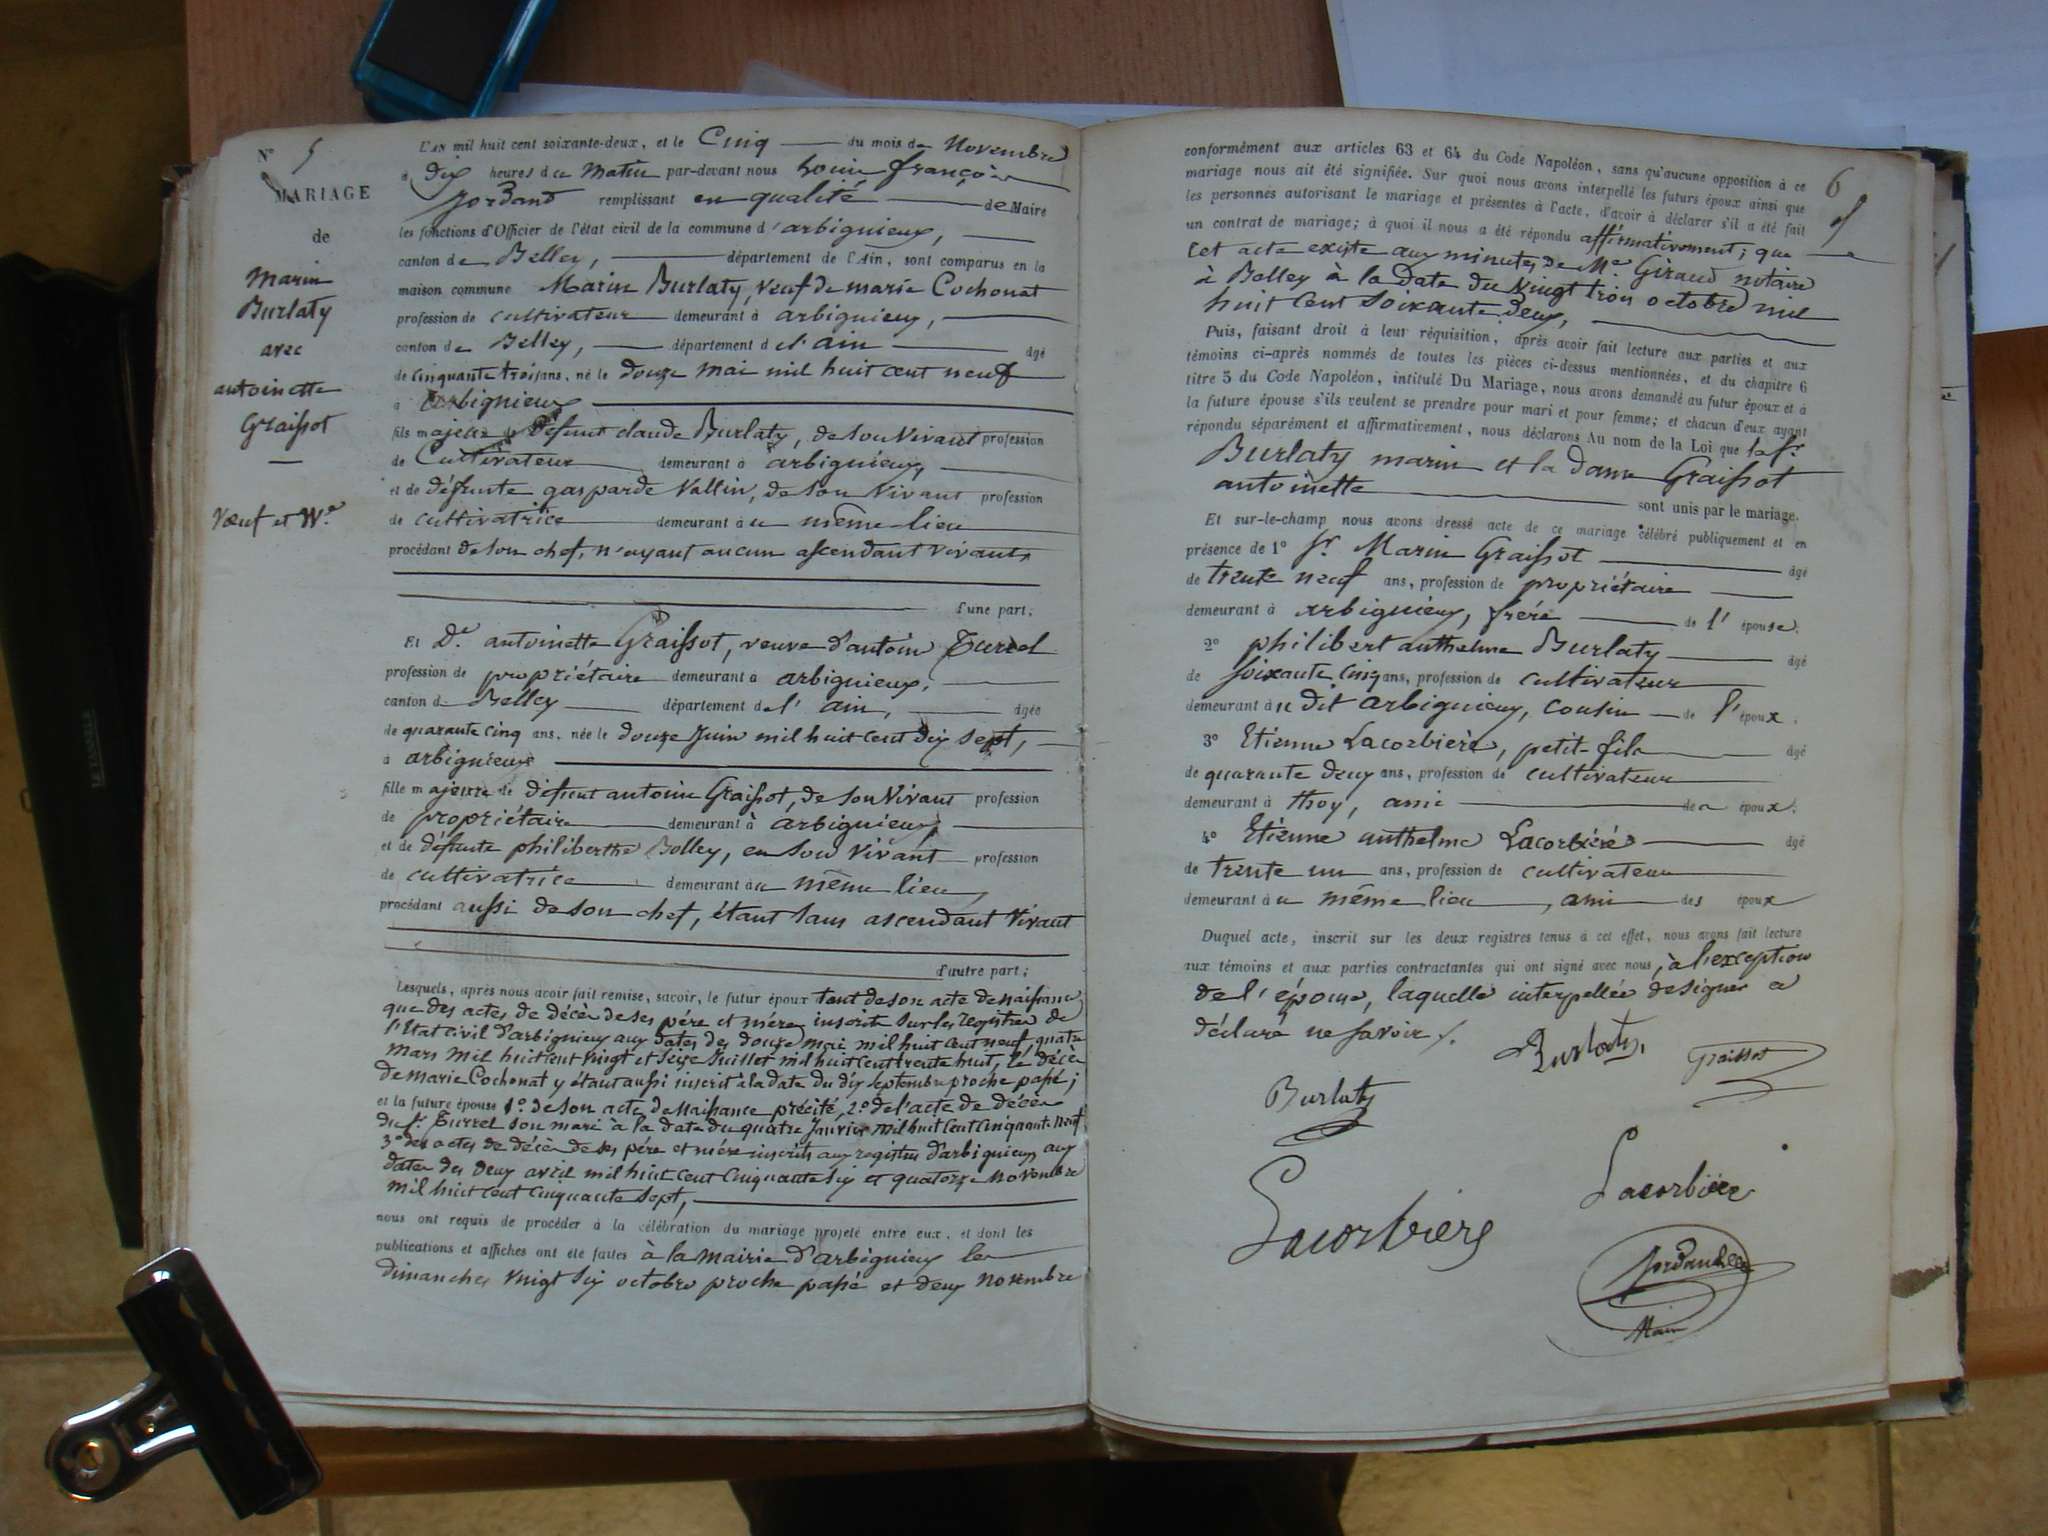 N° 5
MARIAGE
de
Marin
Burlaty
avec
antoinette
Graissot
Veuf et Ve
L'AN mil huit cent soixante-deux, et le Cinq du mois de Novembre
à dix heures du Matin par-devant nous Louis françois
Jordand remplissant en qualité de Maire
les fonctions d'Officier de l'état civil de la commune d'arbignieux,
canton de Belley, département de l'Ain, sont comparus en la
maison commune Marin Burlaty, veuf de marie Cochonat
profession de cultivateur demeurant à arbignieux,
canton de Belley, département de l'ain âgé
de cinquante trois ans, né le douze mai mil huit cent neuf
à arbignieux
fils majeur de défunt claude Burlaty, de son vivant profession
de Cultivateur demeurant à arbignieux,
et de défunte gasparde Vallin, de son vivant profession
de cultivatrice demeurant au même lieu
procédant de son chef, n'ayant aucun ascendant vivants
d'une part;
Et De antoinette Graissot, veuve d'antoine Turrel
profession de propriétaire demeurant à arbignieux,
canton de Belley département de l'ain, âgée
de quarante cinq ans, née le douze Juin mil huit cent dix sept,
à arbignieux
fille majeure de défunt antoine Graissot, de son vivant profession
de propriétaire demeurant à arbignieux,
et de défunte philiberthe Belley, en son vivant profession
de cultivatrice demeurant au même lieu,
procédant aussi de son chef, étant sans ascendant vivant
d'autre part;
Lesquels, après nous avoir fait remise, savoir, le futur époux tant de son acte de naissance
que des actes de décès de ses père et mère, inscrits sur les registres de
l'Etat civil d'arbignieux aux dates des douze mai mil huit cent neuf, quatre
mars mil huit cent vingt et seize Juillet mil huit cent trente huit, le décès
de Marie Cochonat y étant aussi inscrit à la date du dix septembre proche passé;
et la future épouse 1° de son acte de naissance précité, 2° de l'acte de décès
du sr Turrel son mari à la date du quatre Janvier mil huit cent cinquante neuf,
3° des actes de décès de ses père et mère inscrits aux registres d'arbignieux aux
dates des deux avril mil huit cent cinquante six et quatorze novembre
mil huit cent cinquante sept,
nous ont requis de procéder à la célébration du mariage projeté entre eux, et dont les
publications et affiches ont été faites à la mairie d'arbignieux les
dimanches vingt six octobre proche passé et deux novembre
6
conformément aux articles 63 et 64 du Code Napoléon, sans qu'aucune opposition à ce
mariage nous ait été signifiée. Sur quoi nous avons interpellé les futurs époux ainsi que
les personnes autorisant le mariage et présentes à l'acte, d'avoir à déclarer s'il a été fait
un contrat de mariage; à quoi il nous a été répondu affirmativement; que
cet acte existe aux minutes de Me Giraud notaire
à Belley à la date du vingt trois octobre mil
huit cent soixante deux,
Puis, faisant droit à leur réquisition, après avoir fait lecture aux parties et aux
témoins ci-après nommés de toutes les pièces ci-dessus mentionnées, et du chapitre 6
titre 5 du Code Napoléon, intitulé Du Mariage, nous avons demandé au futur époux et à
la future épouse s'ils veulent se prendre pour mari et pour femme; et chacun d'eux ayant
répondu séparément et affirmativement, nous déclarons Au nom de la Loi que le sr
Burlaty marin et la dame Graissot
antoinette sont unis par le mariage.
Et sur-le-champ nous avons dressé acte de ce mariage célébré publiquement et en
présence de 1° sr Marin Graissot âgé
de trente neuf ans, profession de propriétaire
demeurant à arbignieux, frère de l'épouse.
2° philibert anthelme Burlaty âgé
de soixante cinq ans, profession de cultivateur
demeurant au dit arbignieux, cousin de l'époux.
3° Etienne Lacorbière, petit-fils âgé
de quarante deux ans, profession de cultivateur
demeurant à thoy, ami des époux.
4° Etienne anthelme Lacorbière âgé
de trente un ans, profession de cultivateur
demeurant au même lieu, ami des époux
Duquel acte, inscrit sur les deux registres tenus à cet effet, nous avons fait lecture
aux témoins et aux parties contractantes qui ont signé avec nous, à l'exception
de l'épouse, laquelle interpellée de signer a
déclaré ne savoir.
Burlaty
Graissot
Burlaty
Lacorbière
Lacorbiere
Maire